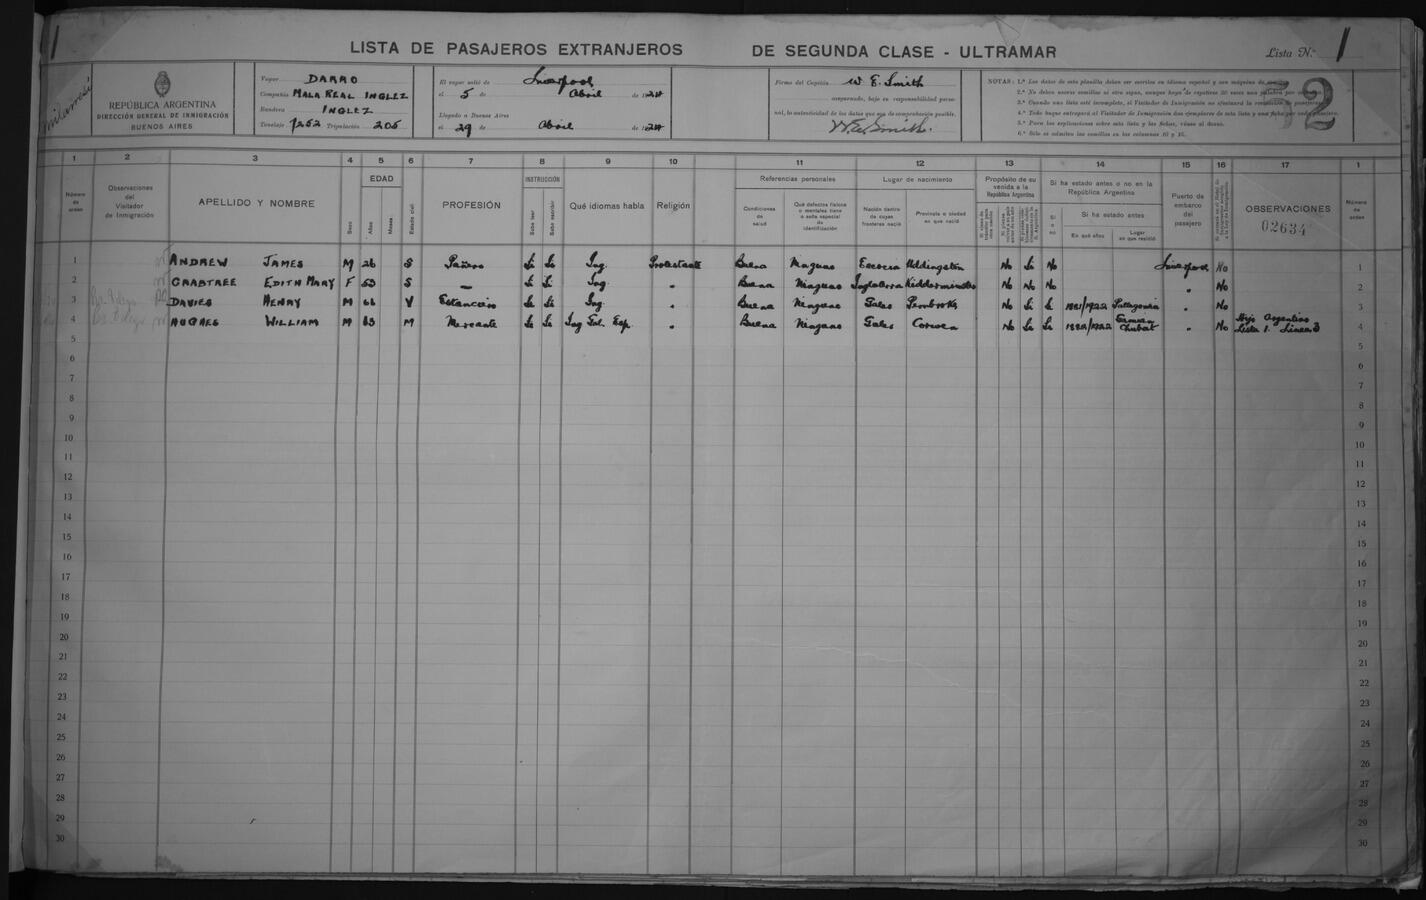 1
LISTA DE PASAJEROS EXTRANJEROS DE SEGUNDA CLASE - ULTRAMAR
Lista N.° 1
52
REPÚBLICA ARGENTINA
DIRECCIÓN GENERAL DE INMIGRACIÓN
BUENOS AIRES
Vapor DARRO
Compañía MALA REAL INGLEZ
Bandera INGLEZ
Tonelaje 7252 Tripulación 205
El vapor salió de Liverpool
el 5 de Abril de 1924
Llegado a Buenos Aires
el 29 de Abril de 1924
Firma del Capitán W. E. Smith
comprueba, bajo su responsabilidad perso-
nal, la autenticidad de los datos que sea de comprobación posible.
W E Smith.
NOTAS: 1.° Los datos de esta planilla deben ser escritos en idioma español y con máquina de
1 2 3 4 5 6 7 8 9 10 11 12 13 14 15 16 17 1
Número de orden
Observaciones del Visitador de Inmigración
APELLIDO Y NOMBRE
Sexo
EDAD
Años
Meses
Estado civil
PROFESIÓN
INSTRUCCIÓN
Sabe leer
Sabe escribir
Qué idiomas habla
Religión
Referencias personales
Condiciones de salud
Qué defectos físicos o mentales tiene o seña especial de identificación
Lugar de nacimiento
Nación dentro de cuyas fronteras nació
Provincia o ciudad en que nació
Propósito de su venida a la República Argentina
Si ha estado antes o no en la República Argentina
Si o no
Si ha estado antes
En qué años
Lugar en que residió
Puerto de embarco del pasajero
OBSERVACIONES
02634
Número de orden
1 ANDREW JAMES M 26 S Si Si Ing Protestante Buena Ninguno Escocia Uddingston No Si No Liverpool No 1
2 CRABTREE EDITH MARY F 53 S — Si Si Ing " Buena Ninguno Inglaterra Kidderminster No No No " No 2
3 DAVIES HENRY M 66 V Estanciero Si Si Ing " Buena Ninguno Gales Pembroke No Si Si 1881/1922 Patagonia " No 3
4 HUGHES WILLIAM M 63 M Si Si Ing Gal. Esp. " Buena Ninguno Gales Corwen No Si Si 1882/1922 Chubut " No Hijo Argentino Lista 1. Linea 3 4
5 5
6 6
7 7
8 8
9 9
10 10
11 11
12 12
13 13
14 14
15 15
16 16
17 17
18 18
19 19
20 20
21 21
22 22
23 23
24 24
25 25
26 26
27 27
28 28
29 29
30 30